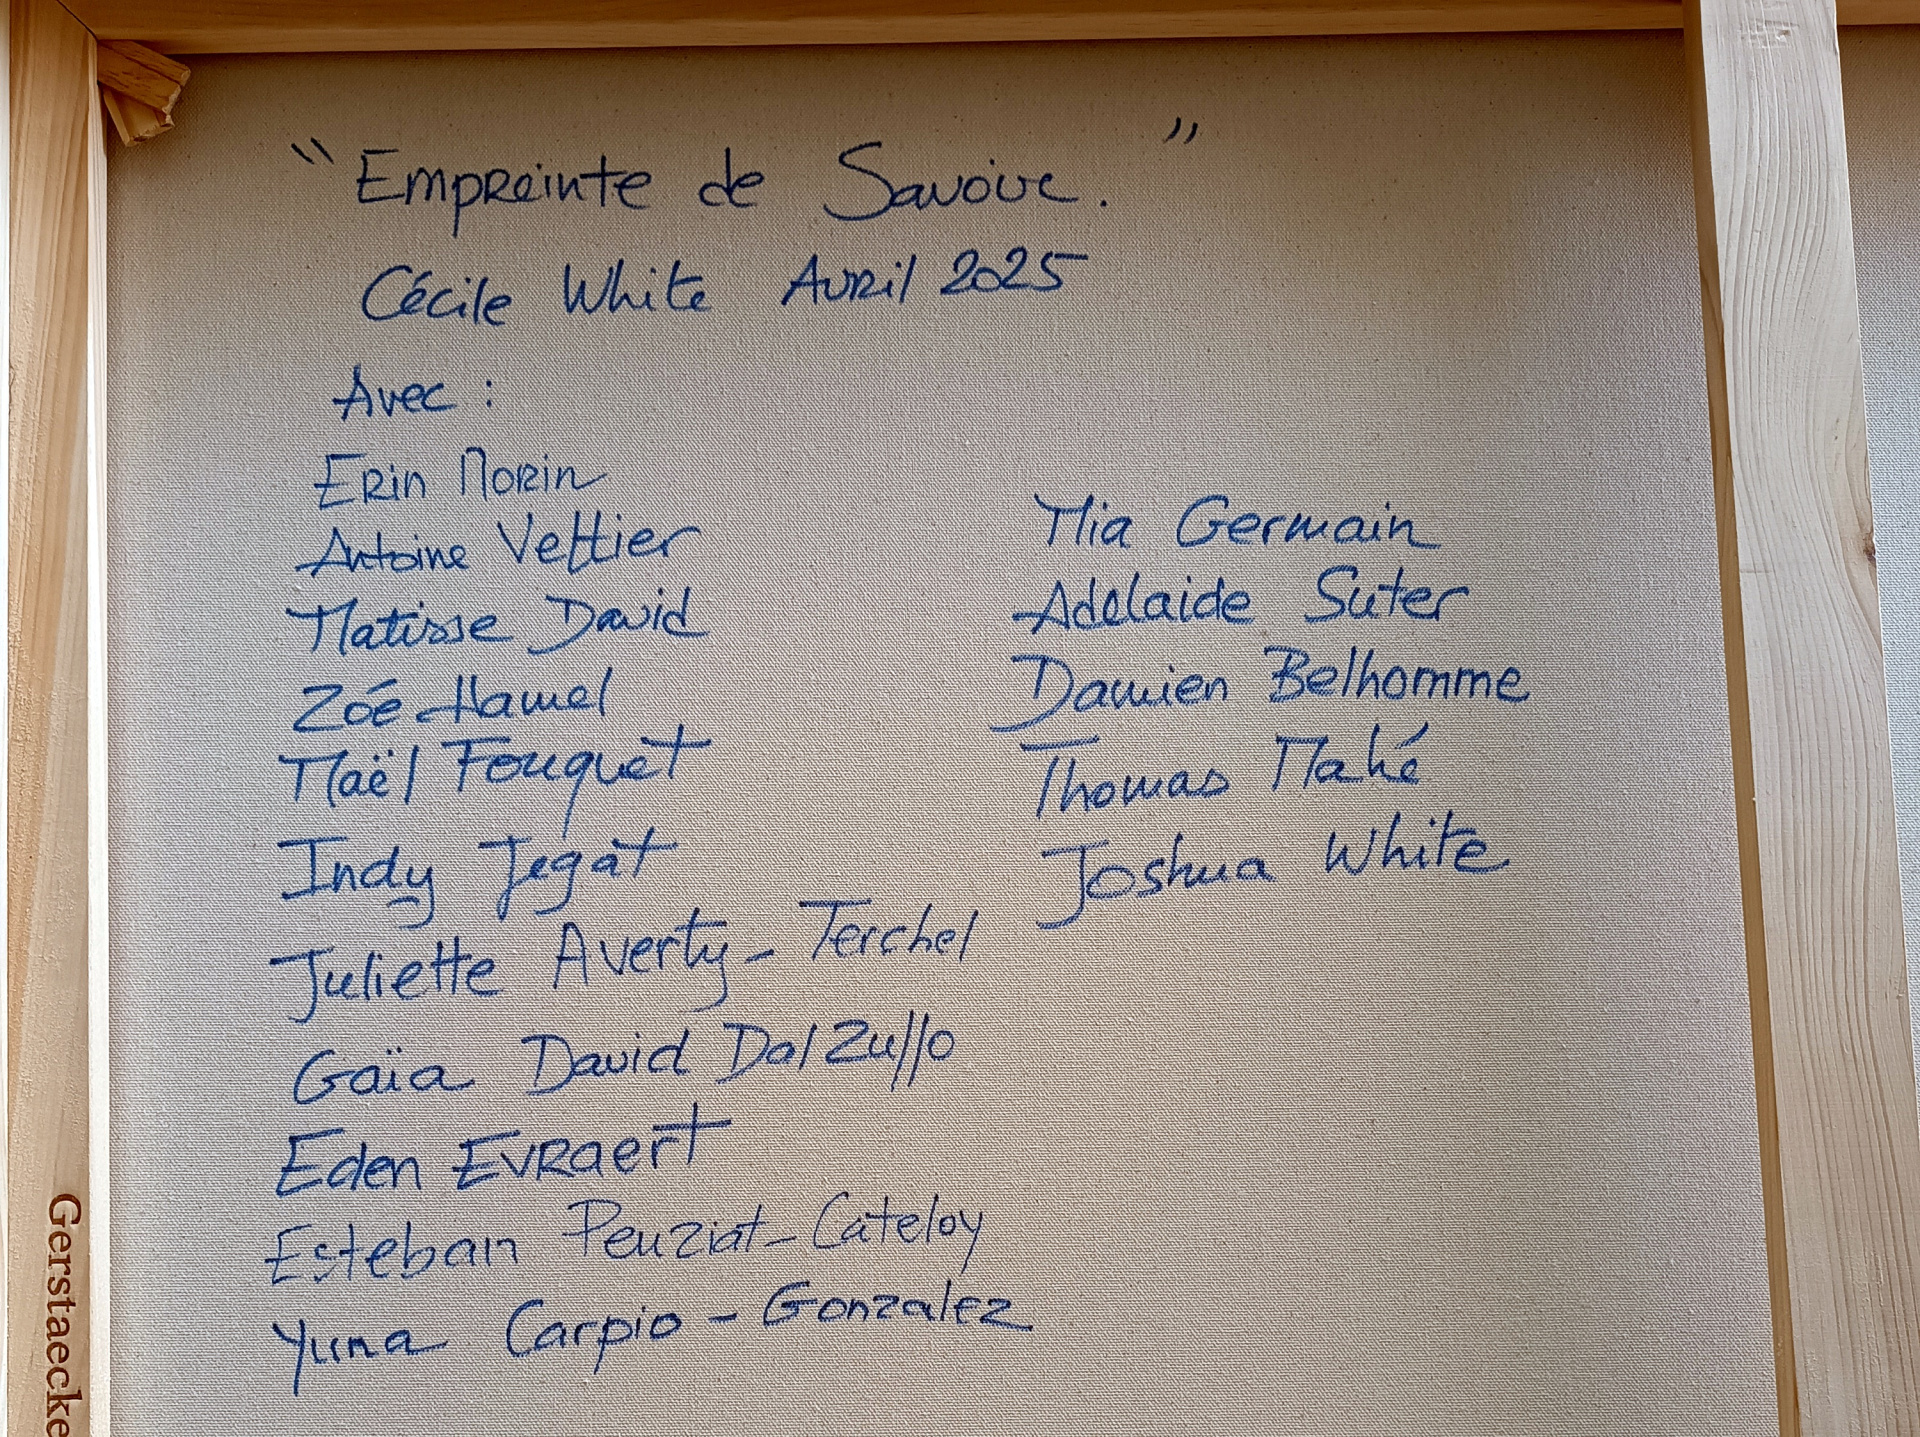 "Empreinte de Savoie."
Cécile White Avril 2025
Avec :
Erin Morin
Antoine Vettier
Matisse David
Zoé Hamel
Maël Fouquet
Indy Jegat
Juliette Averty-Terchel
Gaïa David Dal Zullo
Eden Evraert
Esteban Peuziat-Cateloy
Yuna Carpio-Gonzalez
Mia Germain
Adelaide Suter
Damien Belhomme
Thomas Mahé
Joshua White
Gerstaecke